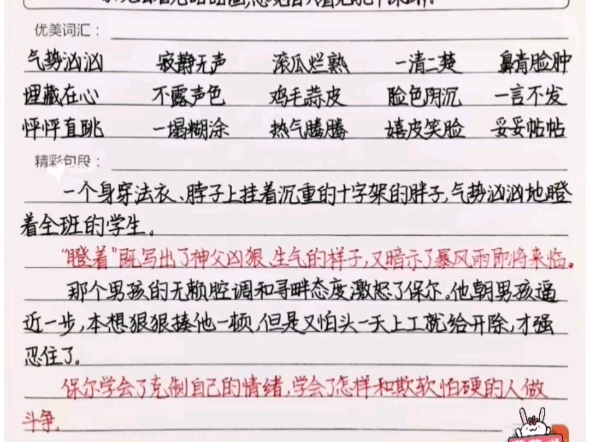 优美词汇：
气势汹汹 寂静无声 滚瓜烂熟 一清二楚 鼻青脸肿
埋藏在心 不露声色 鸡毛蒜皮 脸色阴沉 一言不发
怦怦直跳 一塌糊涂 热气腾腾 嬉皮笑脸 妥妥帖帖
精彩句段：
一个身穿法衣、脖子上挂着沉重的十字架的胖子,气势汹汹地瞪
着全班的学生。
“瞪着”既写出了神父凶狠、生气的样子,又暗示了暴风雨即将来临。
那个男孩的无赖腔调和寻衅态度激怒了保尔。他朝男孩逼
近一步,本想狠狠揍他一顿,但是又怕头一天上工就给开除,才强
忍住了。
保尔学会了克制自己的情绪,学会了怎样和欺软怕硬的人做
斗争。